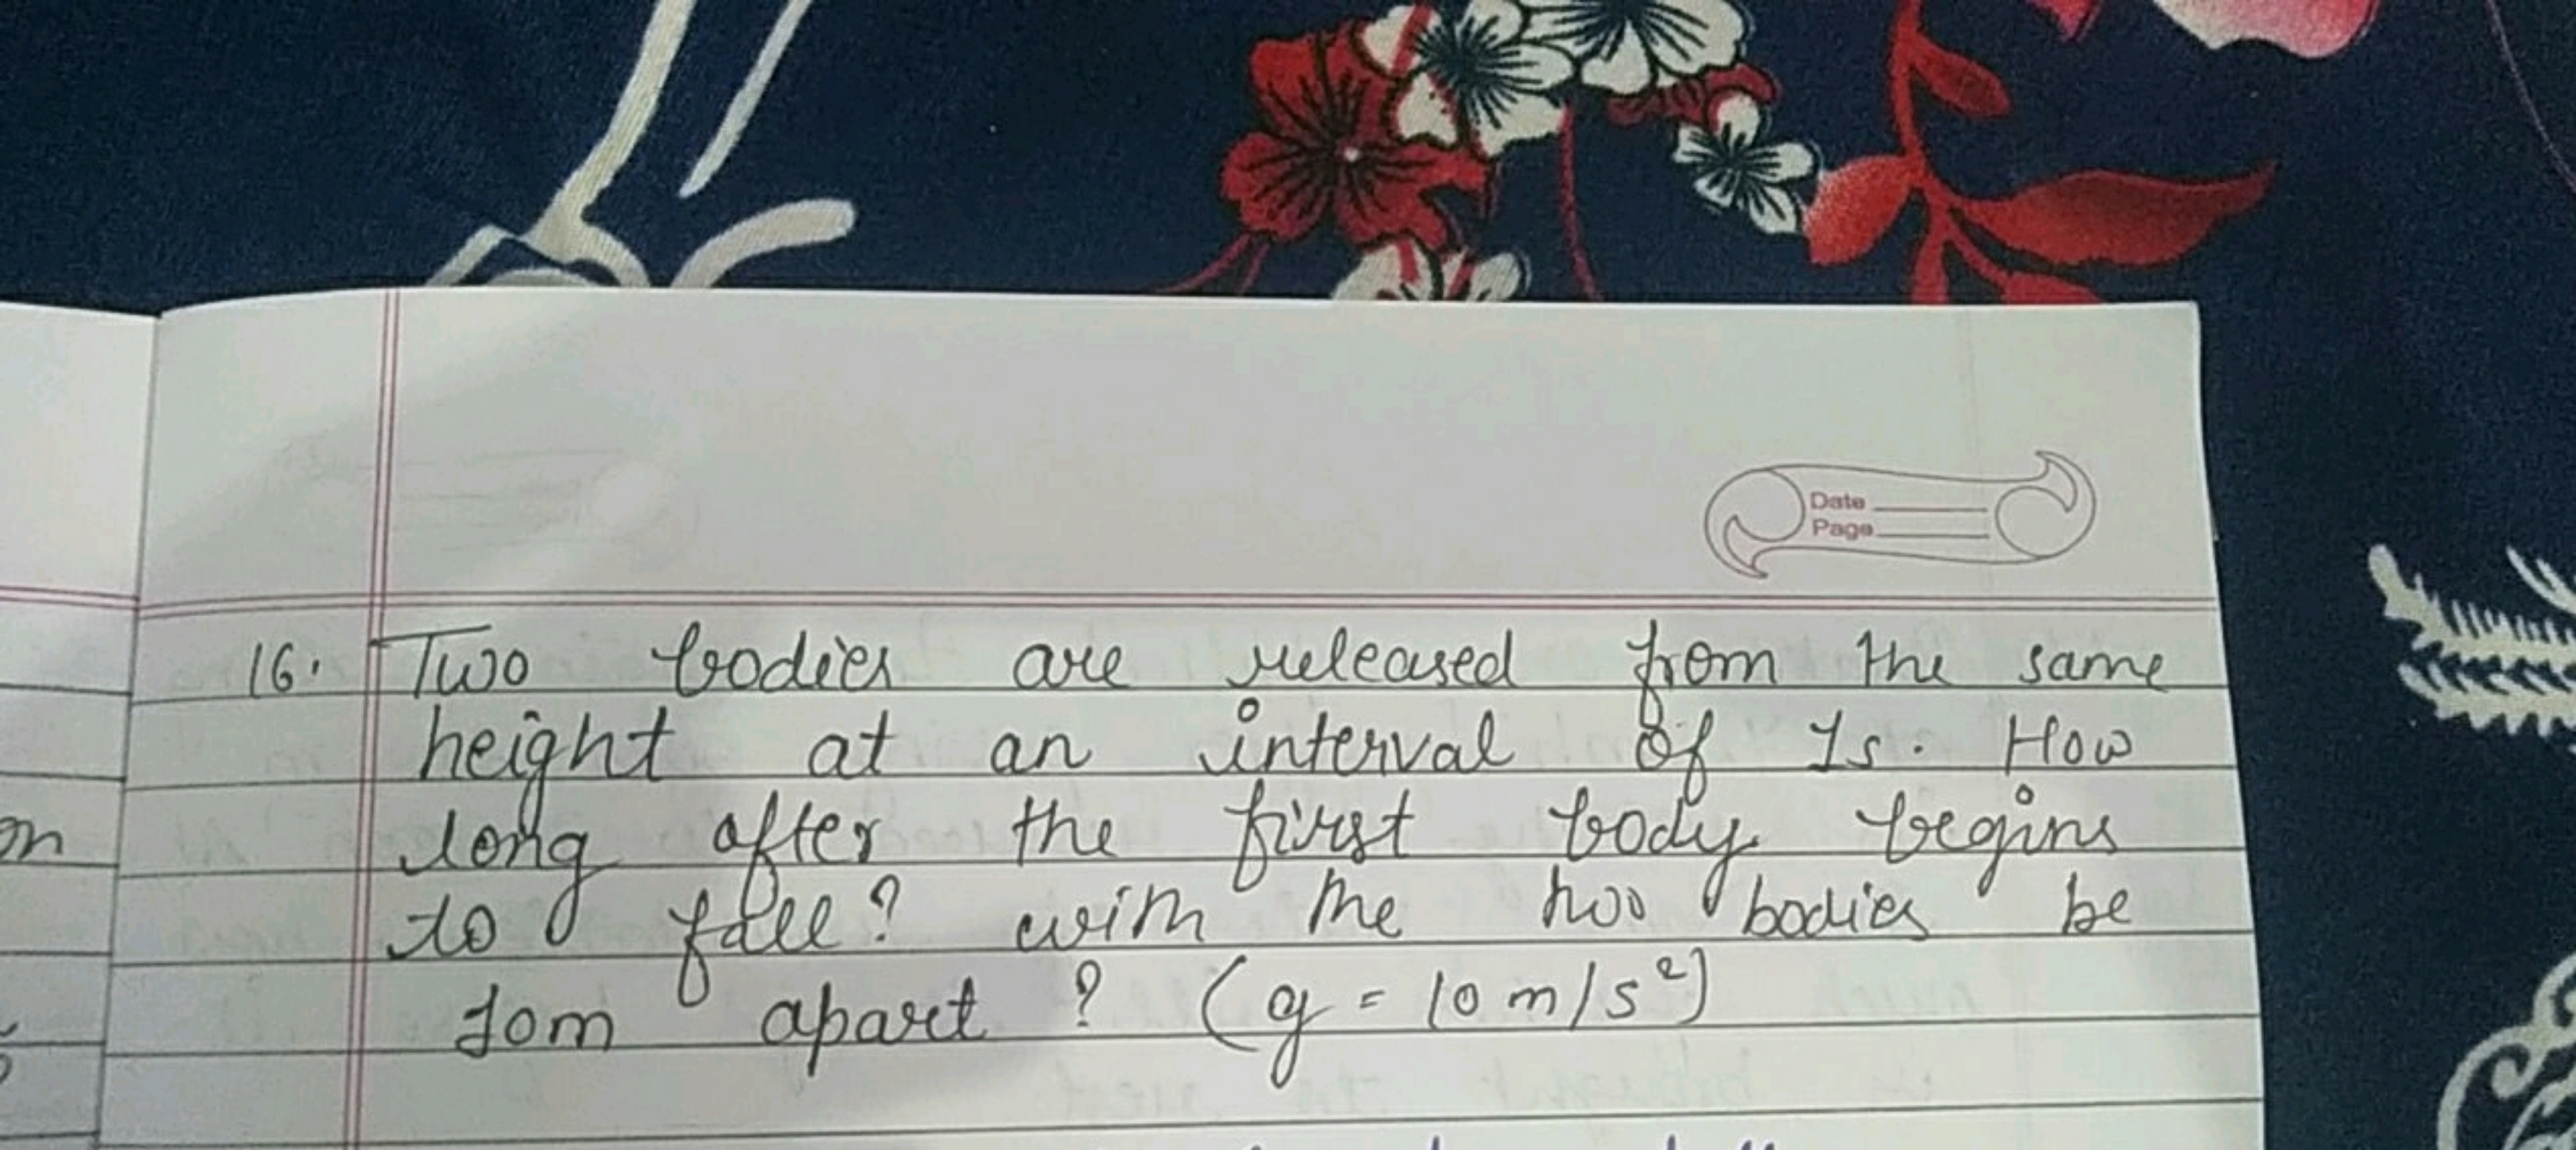 Date
Page
16. Two bodies are released from the same
height at an interval of 1s. How
on long after the first body begins
to fall? with the two bodies be
10m apart? (g = 10 m/s²)